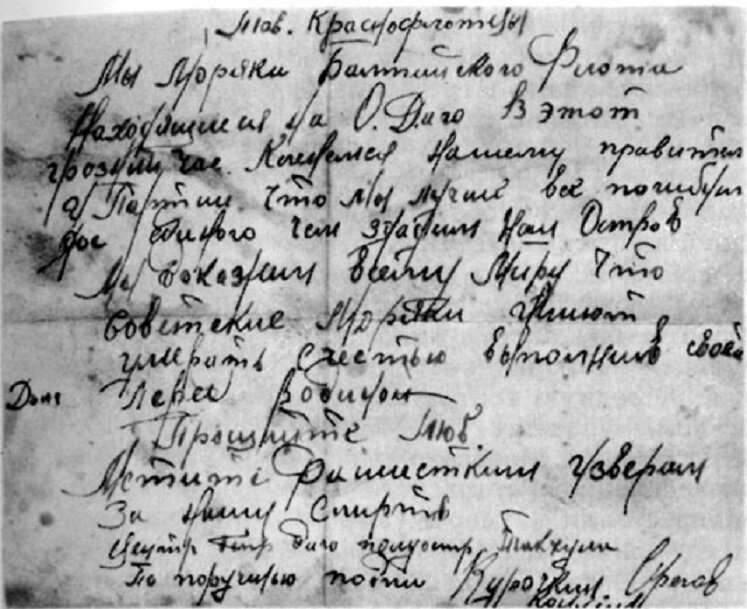 Тов. Краснофлотцы
Мы моряки Балтийского Флота
находящиеся на О. Даго В этот
грозный час. Клянемся нашему правител
и Партии что мы лучше все погибнем
до единого чем здадим наш Остров
Мы докажем всему Миру что
советские моряки умеют
умерать с честью выполнив свой
Долг Перед Родиной
Прощайте
Мстите фашистким изверам
За нашу Смерть
Даго Тахкуна
По поручению Курочкин. Орлов